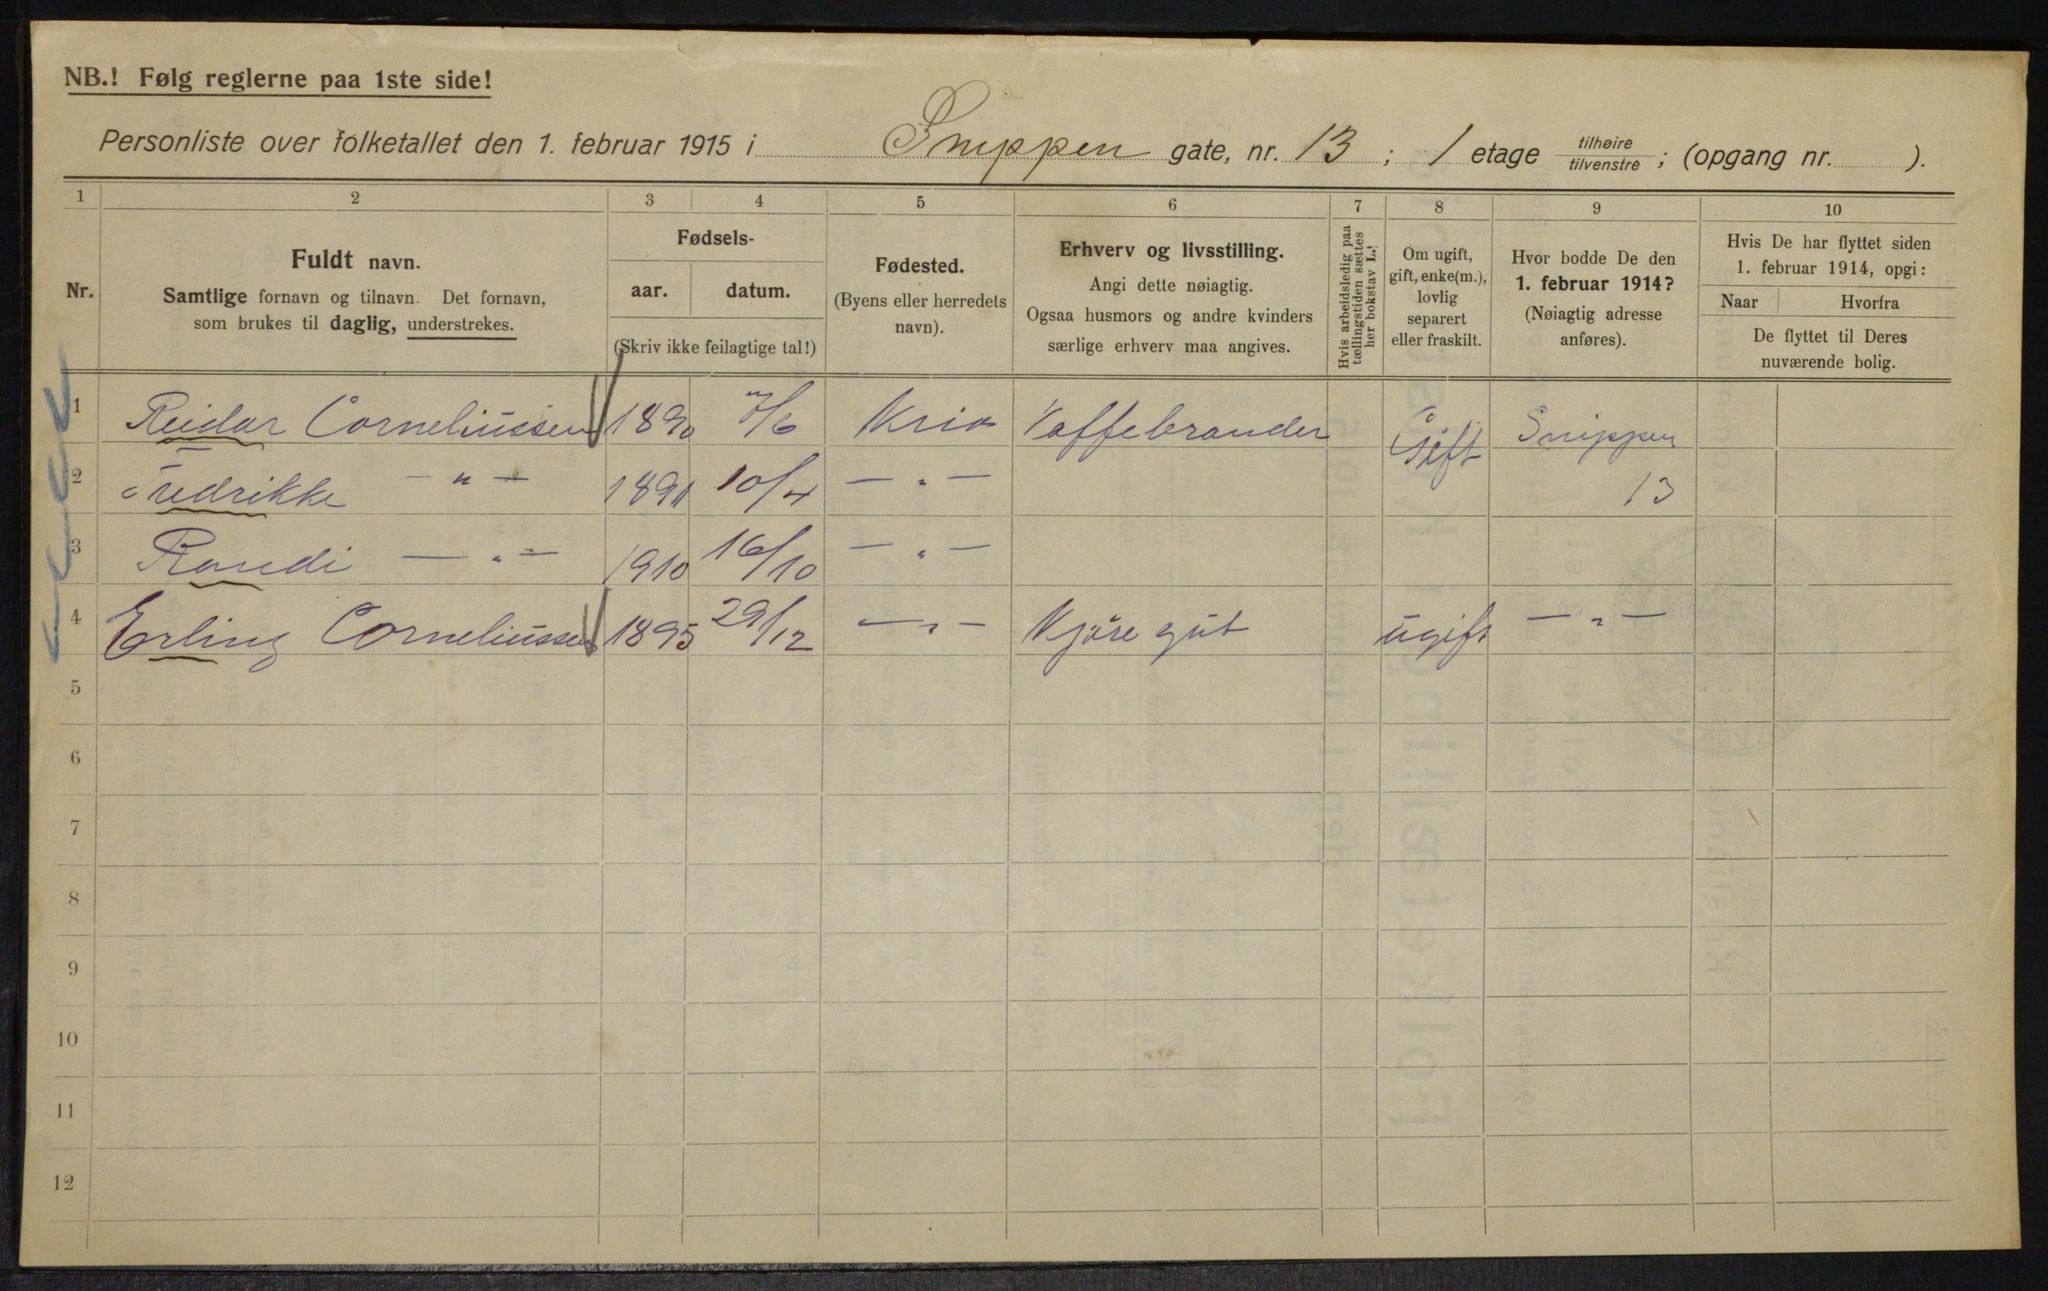 NB.! Følg reglerne paa 1ste side!
Personliste over folketallet den 1. februar 1915 i Snippen gate, nr. 13 ; 1 etage tilhøire/tilvenstre ; (opgang nr. ).
1 2 3 4 5 6 7 8 9 10
Nr.
Fuldt navn.
Samtlige fornavn og tilnavn. Det fornavn,
som brukes til daglig, understrekes.
Fødsels-
aar. datum.
(Skriv ikke feilagtige tal!)
Fødested.
(Byens eller herredets
navn).
Erhverv og livsstilling.
Angi dette nøiagtig.
Ogsaa husmors og andre kvinders
særlige erhverv maa angives.
Hvis arbeidsledig paa
tællingstiden sættes
her bokstav L.!
Om ugift,
gift, enke(m.),
lovlig
separert
eller fraskilt.
Hvor bodde De den
1. februar 1914?
(Nøiagtig adresse
anføres).
Hvis De har flyttet siden
1. februar 1914, opgi:
Naar Hvorfra
De flyttet til Deres
nuværende bolig.
1 Reidar Corneliussen 1890 7/6 Kria Kaffebrander Gift Snippen
2 Fredrikke — " — 1891 10/4 — " — 13
3 Randi — " — 1910 16/10 — " —
4 Erling Corneliussen 1895 29/12 — " — Kjøre gut ugift — " —
5
6
7
8
9
10
11
12